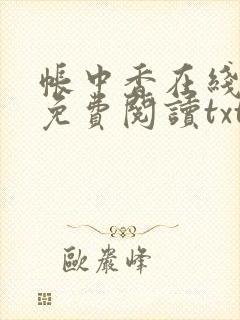 帳中香在綫
免費閱讀txt
歐嚴峰